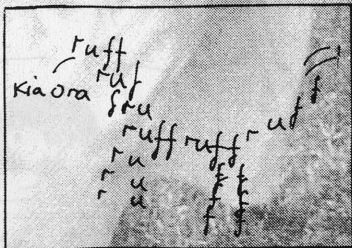 ruff
ruf
Kia Ora
fru
ruff ruff r u f f
r u f f
r u f f
r u f f